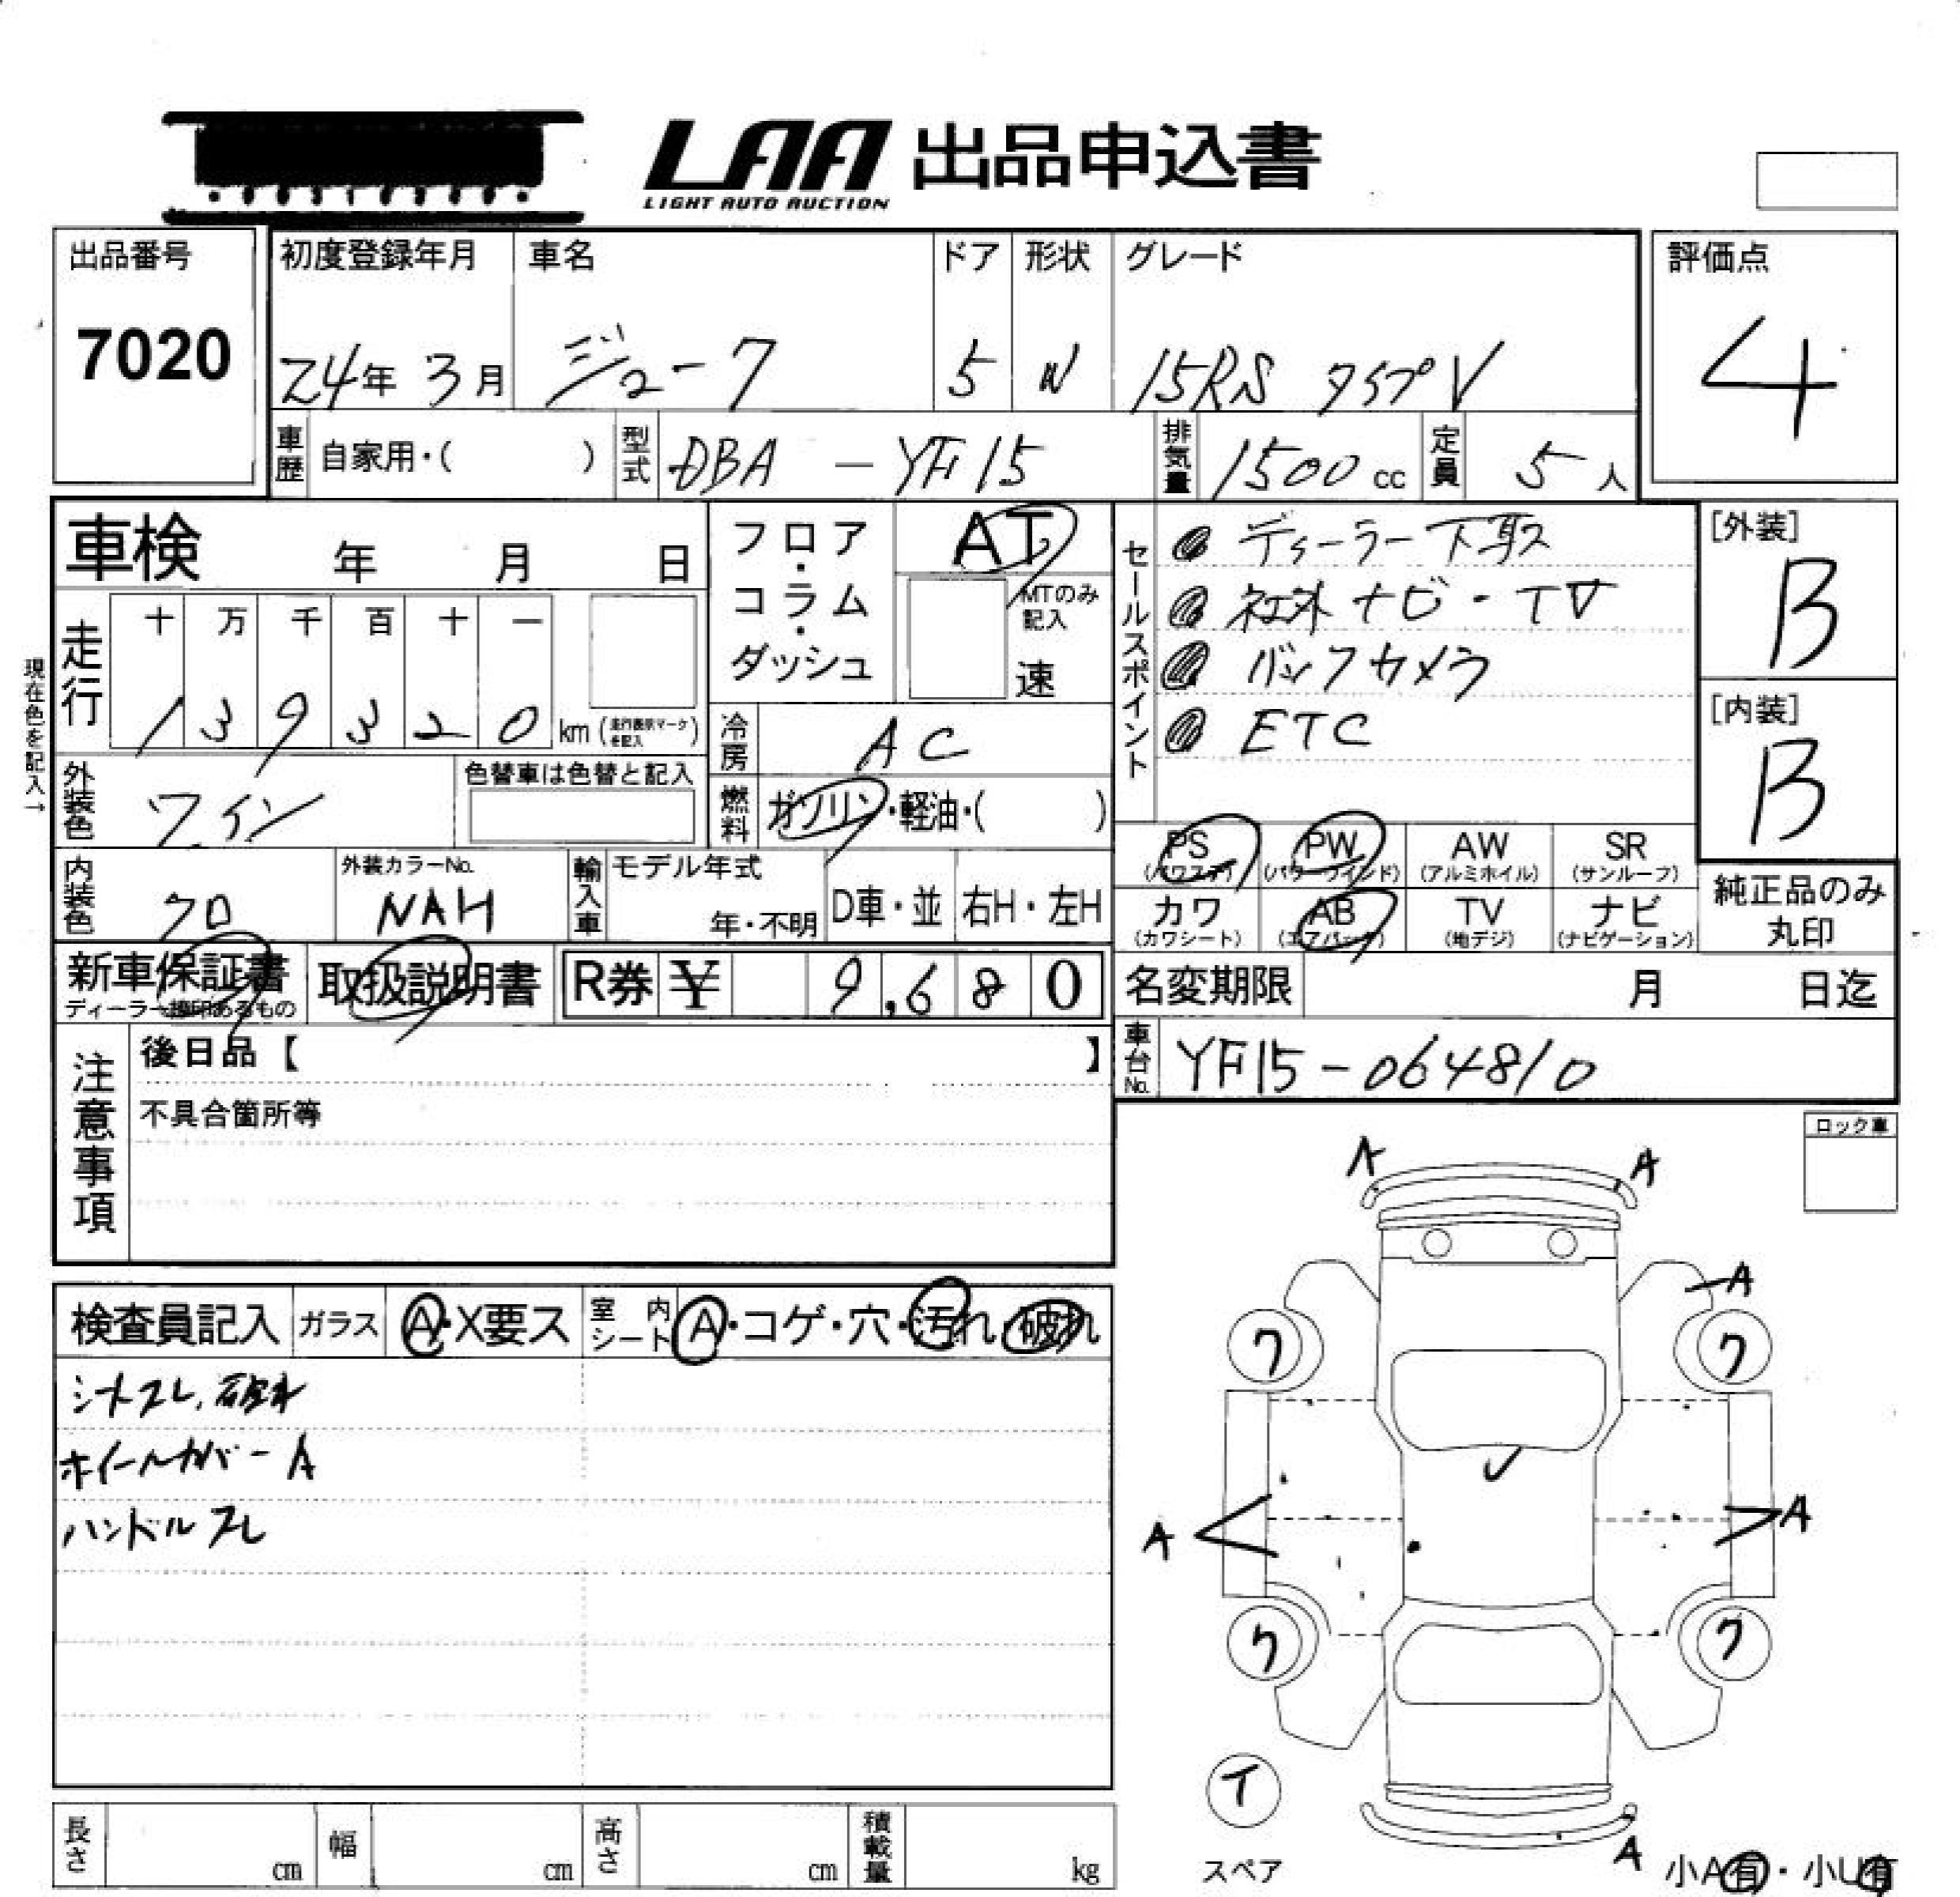 LAA 出品申込書
LIGHT AUTO AUCTION
出品番号 初度登録年月 車名 ドア 形状 グレード 評価点
7020 24年 3月 ジューク 5 W 15RS タイプV 4
車歴 自家用・( ) 型式 DBA - YF15 排気量 1500cc 定員 5人
車検 年 月 日
フロア・コラム・ダッシュ AT
MTのみ記入
速
セールスポイント
ディーラー下取ス
社外ナビ・TV
バックカメラ
ETC
[外装]
B
[内装]
B
現在色を記入→
走行 十 万 千 百 十 一
1 3 9 3 2 0 km (走行表示マークを記入)
冷房 AC
外装色 ワイン 色替車は色替と記入
燃料 ガソリン・軽油・( )
PS (パワステ) PW (パワーウィンド) AW (アルミホイル) SR (サンルーフ)
カワ (カワシート) AB (エアバック) TV (地デジ) ナビ (ナビゲーション)
純正品のみ丸印
内装色 クロ 外装カラーNo. NAH 輸入車 モデル年式 年・不明 D車・並 右H・左H
新車保証書 取扱説明書 R券 ¥ 9,680 名変期限 月 日迄
ディーラー捺印あるもの
車台No. YF15-064810
注意事項
後日品【 】
不具合箇所等
ロック車
検査員記入 ガラス A・X要ス 室内シート A・コゲ・穴・汚れ・破れ
シートスレ、破れ
ホイールカバーA
ハンドルスレ
A A
A
ワ ワ
A A
ワ ワ
T
スペア
A
小A有・小U有
長さ cm 幅 cm 高さ cm 積載量 kg